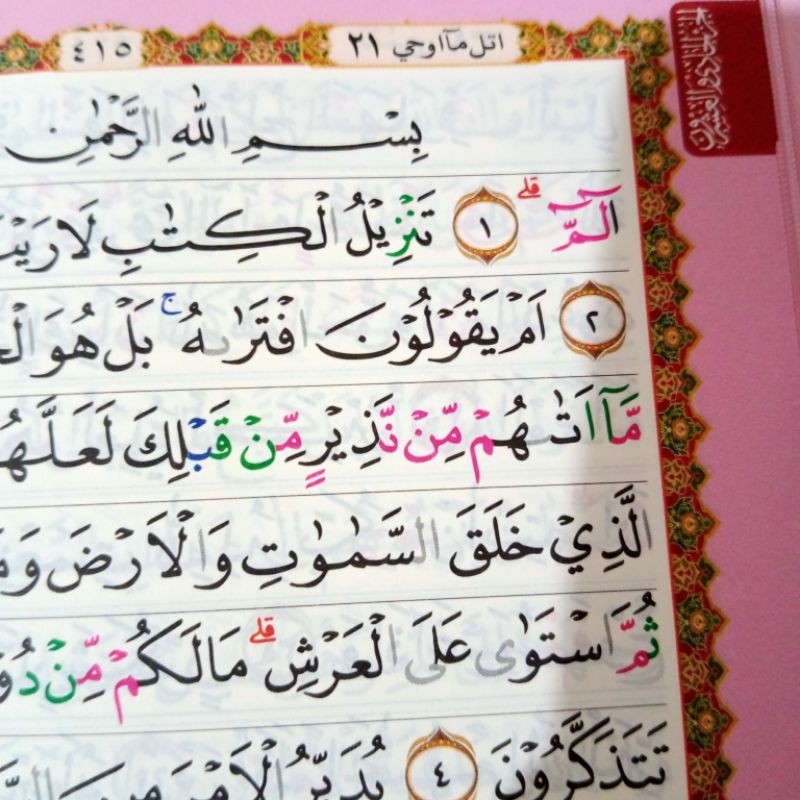 ٤١٥
اتل مآاوحي ٢١
الجزء الحادي والعشرون
بِسْمِ اللهِ الرَّحْمٰنِ
الٓمّٓ ۗ ١ تَنْزِيْلُ الْكِتٰبِ لَا رَيْبَ
٢ اَمْ يَقُوْلُوْنَ افْتَرٰىهُ ۚ بَلْ هُوَ
مَّآ اَتٰىهُمْ مِّنْ نَّذِيْرٍ مِّنْ قَبْلِكَ لَعَلَّهُ
الَّذِيْ خَلَقَ السَّمٰوٰتِ وَالْاَرْضَ وَ
ثُمَّ اسْتَوٰى عَلَى الْعَرْشِ ۗ مَا لَكُمْ مِّنْ دُوْ
تَتَذَكَّرُوْنَ ٤ يُدَبِّرُ الْاَمْرَ مِنَ